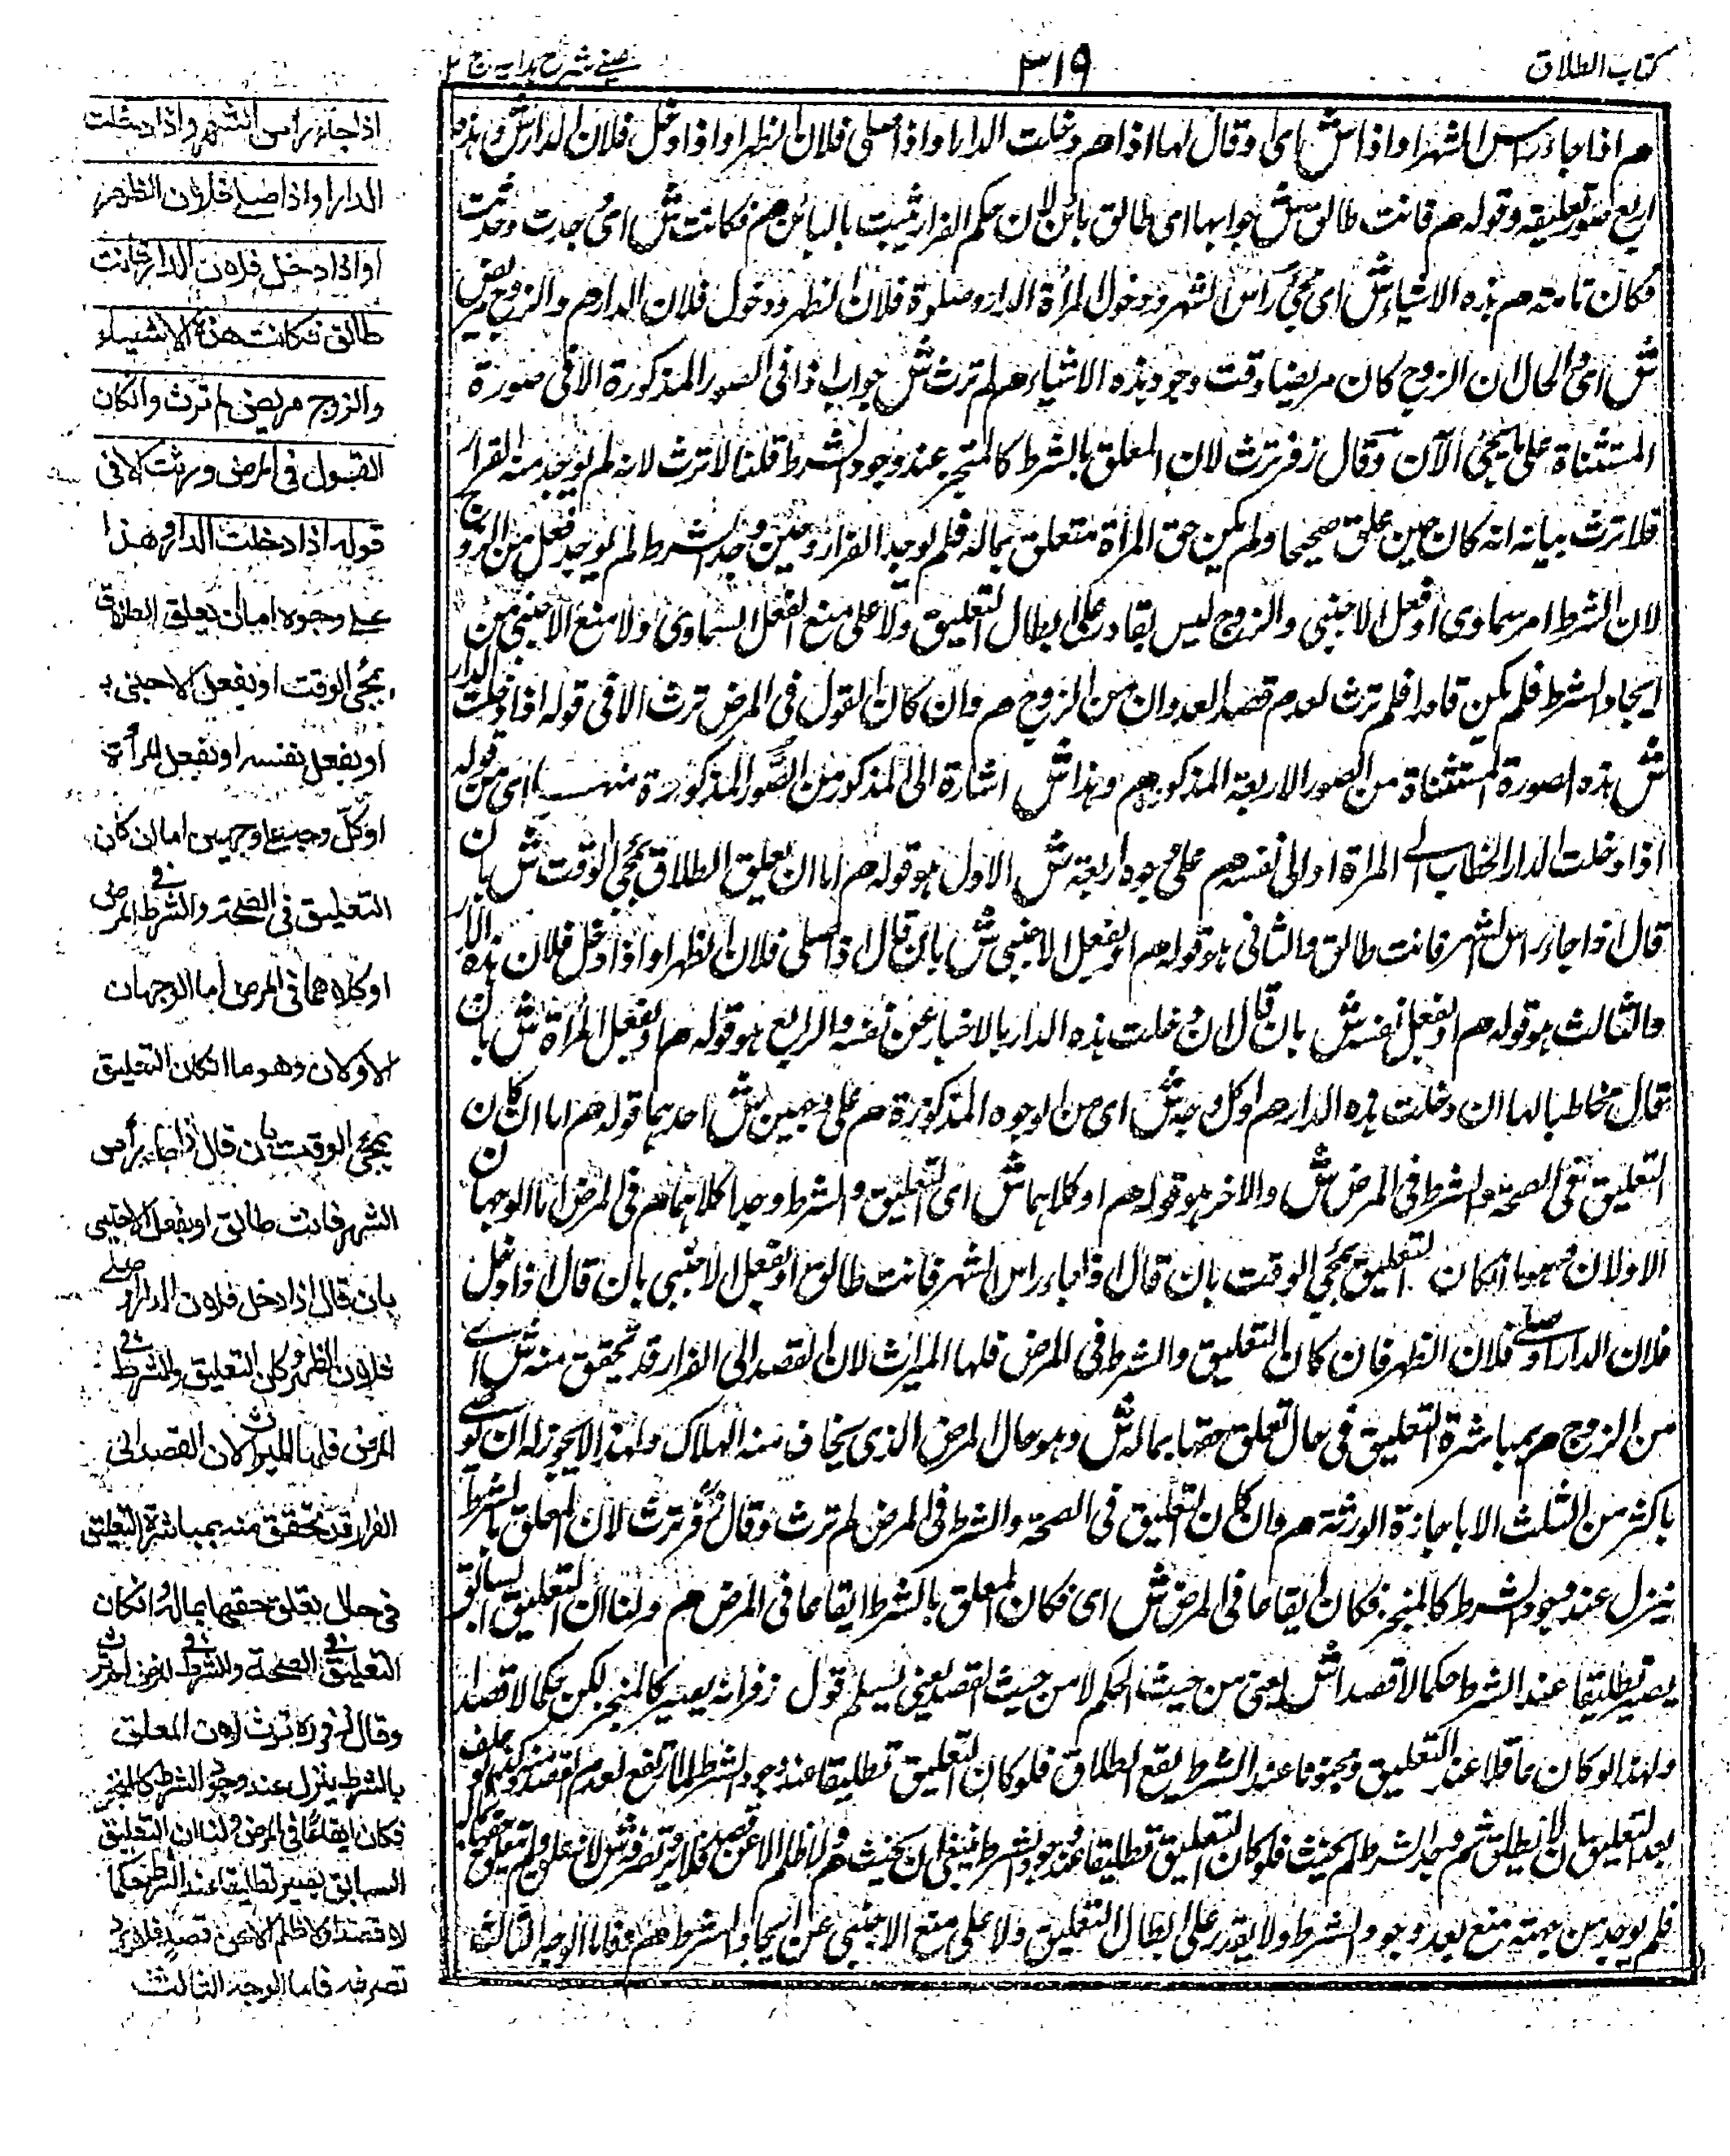 كتاب الطلاق
٣١٩
عينى شرح هدايه ج ٢
هم اذا جاء راس الشهر او اذا ش اى او قال لها اذا هم دخلت الدار او اذا صلى فلان الظهر او اذا دخل فلان الدار ش وهذه
اربع صور تعليقه وقوله هم فانت طالق ش جوابها اى طالق بائن لان حكم الفرار يثبت بالبائن هم فكانت ش اى وجدت وحدثت
فكان تامة هم هذه الاشياء ش اى مجئ رأس الشهر ودخول المرأة الدار وصلوة فلان الظهر ودخول فلان الدار هم والزوج مريض
ش اى والحال ان الزوج كان مريضا وقت وجود هذه الاشياء هم لم ترث ش جواب اذا فى الصور المذكورة الا فى صورة
المستثناة على ما يجئ الآن وقال زفر ترث لان المعلق بالشرط كالمنجز عند وجود الشرط قلنا لا ترث لانه لم يوجد منه الفرار
فلا ترث بيانه انه كان حين علق صحيحا ولم يكن حق المرأة متعلق بماله فلم يوجد الفرار وحين وجد الشرط لم يوجد فعل من الزوج
لان الشرط امر سماوى او فعل الاجنبى والزوج ليس بقادر على ابطال التعليق ولا على منع الفعل السماوى ولا منع الاجنبى من
ايجاد الشرط فلم يكن قاصدا فلم ترث لعدم قصد العدوان من الزوج هم وان كان القول فى المرض ترث الا فى قوله اذا دخلت الدار
ش هذه الصورة المستثناة من الصور الاربعة المذكورة هم وهذا ش اشارة الى المذكور من الصور المذكورة منها اى من قوله
اذا دخلت الدار الخطاب الى المرأة او الى نفسه هم على وجوه اربعة ش الاول هو قوله هم اما ان يعلق الطلاق بمجئ الوقت ش بان
قال اذا جاء راس الشهر فانت طالق والثانى هو قوله هم او بفعل الاجنبى ش بان قال اذا صلى فلان الظهر او اذا دخل فلان هذه الدار
والثالث هو قوله هم او بفعل نفسه ش بان قال ان دخلت هذه الدار بالاخبار عن نفسه والرابع هو قوله هم او بفعل المرأة ش بان
قال مخاطبا لها ان دخلت هذه الدار هم وكل وجه ش اى من الوجوه المذكورة هم على وجهين ش احدهما قوله هم اما ان كان
التعليق فى الصحة والشرط فى المرض ش والاخر هو قوله هم او كلاهما ش اى التعليق والشرط وجدا كلاهما هم فى المرض اما الوجهان
الاولان وهو ما اذا كان التعليق بمجئ الوقت بان قال اذا جاء راس الشهر فانت طالق او بفعل الاجنبى بان قال اذا دخل
فلان الدار او صلى فلان الظهر فان كان التعليق والشرط فى المرض فلها الميراث لان القصد الى الفرار قد تحقق منه ش اى
من الزوج هم بمباشرة التعليق فى حال تعلق حقها بماله ش وهو حال المرض الذى يخاف منه الهلاك ولهذا لا يجوز له ان يوصى
باكثر من الثلث الا باجازة الورثة هم وان كان التعليق فى الصحة والشرط فى المرض لم ترث وقال زفر ترث لان المعلق بالشرط
ينزل عند وجود الشرط كالمنجز فكان ايقاعا فى المرض ش اى فكان المعلق بالشرط ايقاعا فى المرض هم ولنا ان التعليق السابق
يصير تطليقا عند الشرط حكما لا قصدا ش يعنى من حيث الحكم لا من حيث القصد يعنى يسلم قول زفر انه يصير كالمنجز لكن حكما لا قصدا
ولهذا لو كان عاقلا عند التعليق ومجنونا عند الشرط يقع الطلاق فلو كان التعليق تطليقا عند وجود الشرط لما وقع لعدم القصد منه وكذا لو حلف
بعد التعليق بان لا يطلق ثم وجد الشرط لم يحنث فلو كان التعليق تطليقا عند وجود الشرط فينبغى ان يحنث هم ولا ظلم الا عن قصد فلا يرد تصرفه ش لانه علق ولم يتعلق حقها بماله
فلم يوجد من جهته منع بعد وجود الشرط ولا يقدر على ابطال التعليق ولا على منع الاجنبى عن ايجاد الشرط هم فاما الوجه الثالث
اذا جاء رأس الشهر واذا دخلت
الدار او اذا صلى فلان الظهر
او اذا دخل فلان الدار فانت
طالق فكانت هذه الاشياء
والزوج مريض لم ترث وان كان
القبول فى المرض ورثت الا فى
قوله اذا دخلت الدار وهذا
على وجوه اما ان يعلق الطلاق
بمجئ الوقت او بفعل الاجنبى
او بفعل نفسه او بفعل المرأة
وكل وجه على وجهين اما ان كان
التعليق فى الصحة والشرط فى المرض
او كلاهما فى المرض اما الوجهان
الاولان وهو ما اذا كان التعليق
بمجئ الوقت بان قال اذا جاء رأس
الشهر فانت طالق او بفعل الاجنبى
بان قال اذا دخل فلان الدار او صلى
فلان الظهر وكان التعليق والشرط فى
المرض فلها الميراث لان القصد الى
الفرار قد تحقق منه بمباشرة التعليق
فى حال تعلق حقها بماله وان كان
التعليق فى الصحة والشرط فى المرض لم ترث
وقال زفر ره ترث لان المعلق
بالشرط ينزل عند وجود الشرط كالمنجز
فكان ايقاعا فى المرض ولنا ان التعليق
السابق يصير تطليقا عند الشرط حكما
لا قصدا ولا ظلم الا عن قصد فلا يرد
تصرفه فاما الوجه الثالث